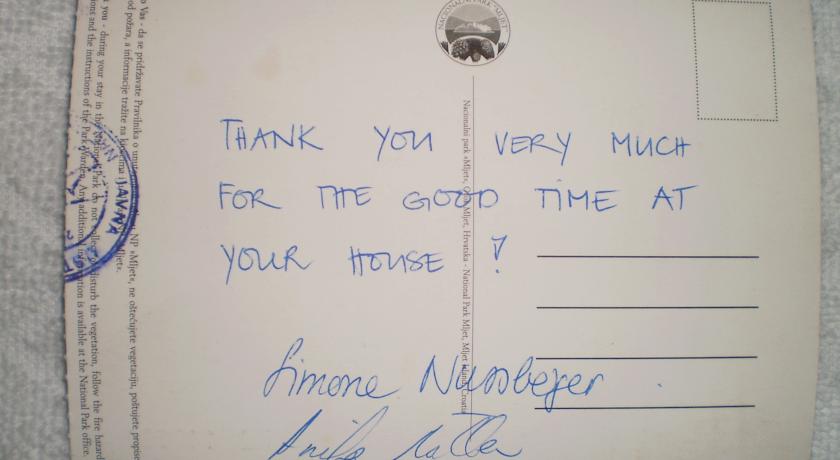 THANK YOU VERY MUCH
FOR THE GOOD TIME AT
YOUR HOUSE !
Simone
NACIONALNI PARK "MLJET"
Nacionalni park »Mljet«, Mljet, Hrvatska - National Park Mljet, Mljet Island, Croatia
Vas - da se pridržavate Pravilnika o
od požara, a informacije tražite na
NP »Mljet«, ne oštećujete vegetaciju, poštujete propise
Mljet«.
you - during your stay in the National Park do not collect or disturb the vegetation, follow the fire hazard
and the instructions of the Park Warden. Any additional information is available at the National Park office.
JAVNA